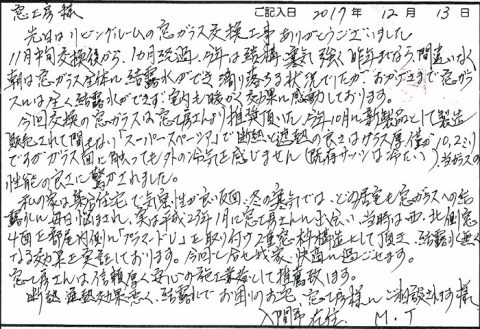 窓工房様
ご記入日 2017年 12月 13日
先日はリビングルームの窓ガラス交換工事ありがとうございました
11月中旬交換後から、1カ月経過、今年は結構寒気も強く昨年までなら、間違いなく
朝は窓ガラス全体に結露水ができ滴り落ちる状況でしたが、おかげさまで窓ガ
ラスには全く結露水ができず、室内も暖かく効果に感動しております。
今回交換の窓ガラスは窓工房さんより推奨頂いた今年10月に新製品として製造
販売されて間もない「スーパースペーシア」で断熱と遮熱の良さはガラス厚僅か10.2ミリ
ですがガラス面に触っても外の冷気を感じません(既存サッシは冷たい)、当ガラスの
性能の良さに驚かされました。
私の家は茅分住宅で気密性が良い反面、冬の寒気では、どの居室も窓ガラスへの結
露水に毎日悩まされ、実は平成25年1月に窓工房さんと出会い、当時は西、北側窓
4面を部屋内側に「プラマードU」を取り付け2重窓枠構造として頂き、結露水無く
なる効果を実証しております。今回と合せ我家、快適に過ごせます。
窓工房さんは信頼厚く安心の施工業者として推薦致します。
断熱遮熱効果悪く、結露水でお困りのお宅、窓工房様にご相談されます様
入間市在住 M.T